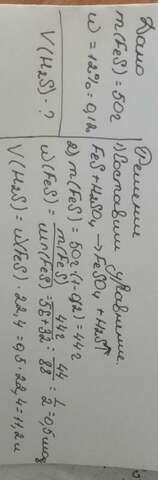 Дано
m(FeS) = 50г
ω = 12% = 0,12
V(H₂S) - ?
Решение
1) Составим уравнение
FeS + H₂SO₄ → FeSO₄ + H₂S↑
2) m(FeS) = 50г · (1 - 0,12) = 44г
ν(FeS) = m(FeS) / M(FeS) = 44г / 56+32 = 44 / 88 = 1 / 2 = 0,5 моль
V(H₂S) = ν(FeS) · 22,4 = 0,5 · 22,4 = 11,2 л